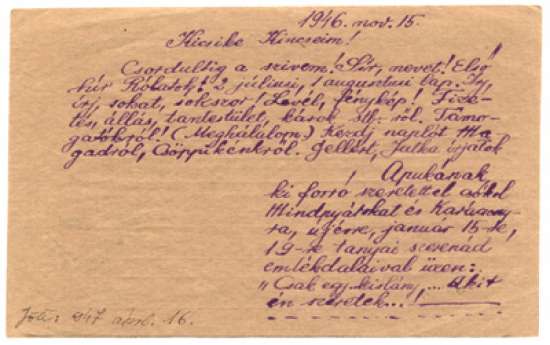 1946. nov. 15.
Kicsike Kincseim!
Csordultig a szivem! Sír, nevet! Első
hír Rólatok! 2 júliusi, 1 augusztusi lap. Így,
írj, sokat, sokszor! Levél, fénykép! Fize-
tés, állás, tantestület, károk stb.-ről. Támo-
gatókról! (Meghálálom.) Kezdj naplót Ma-
gadról, Csöppükénkről. Gellért, Jutka írjatok
! Apukának,
ki forró szeretettel csókol
Mindnyátokat és Karácsony-
ra, újévre, január 15-re,
19-re tanyai szerenád
emlékdalaival üzen:
"Csak egy kislány,... akit
én szeretek...!
947 ápr. 16.